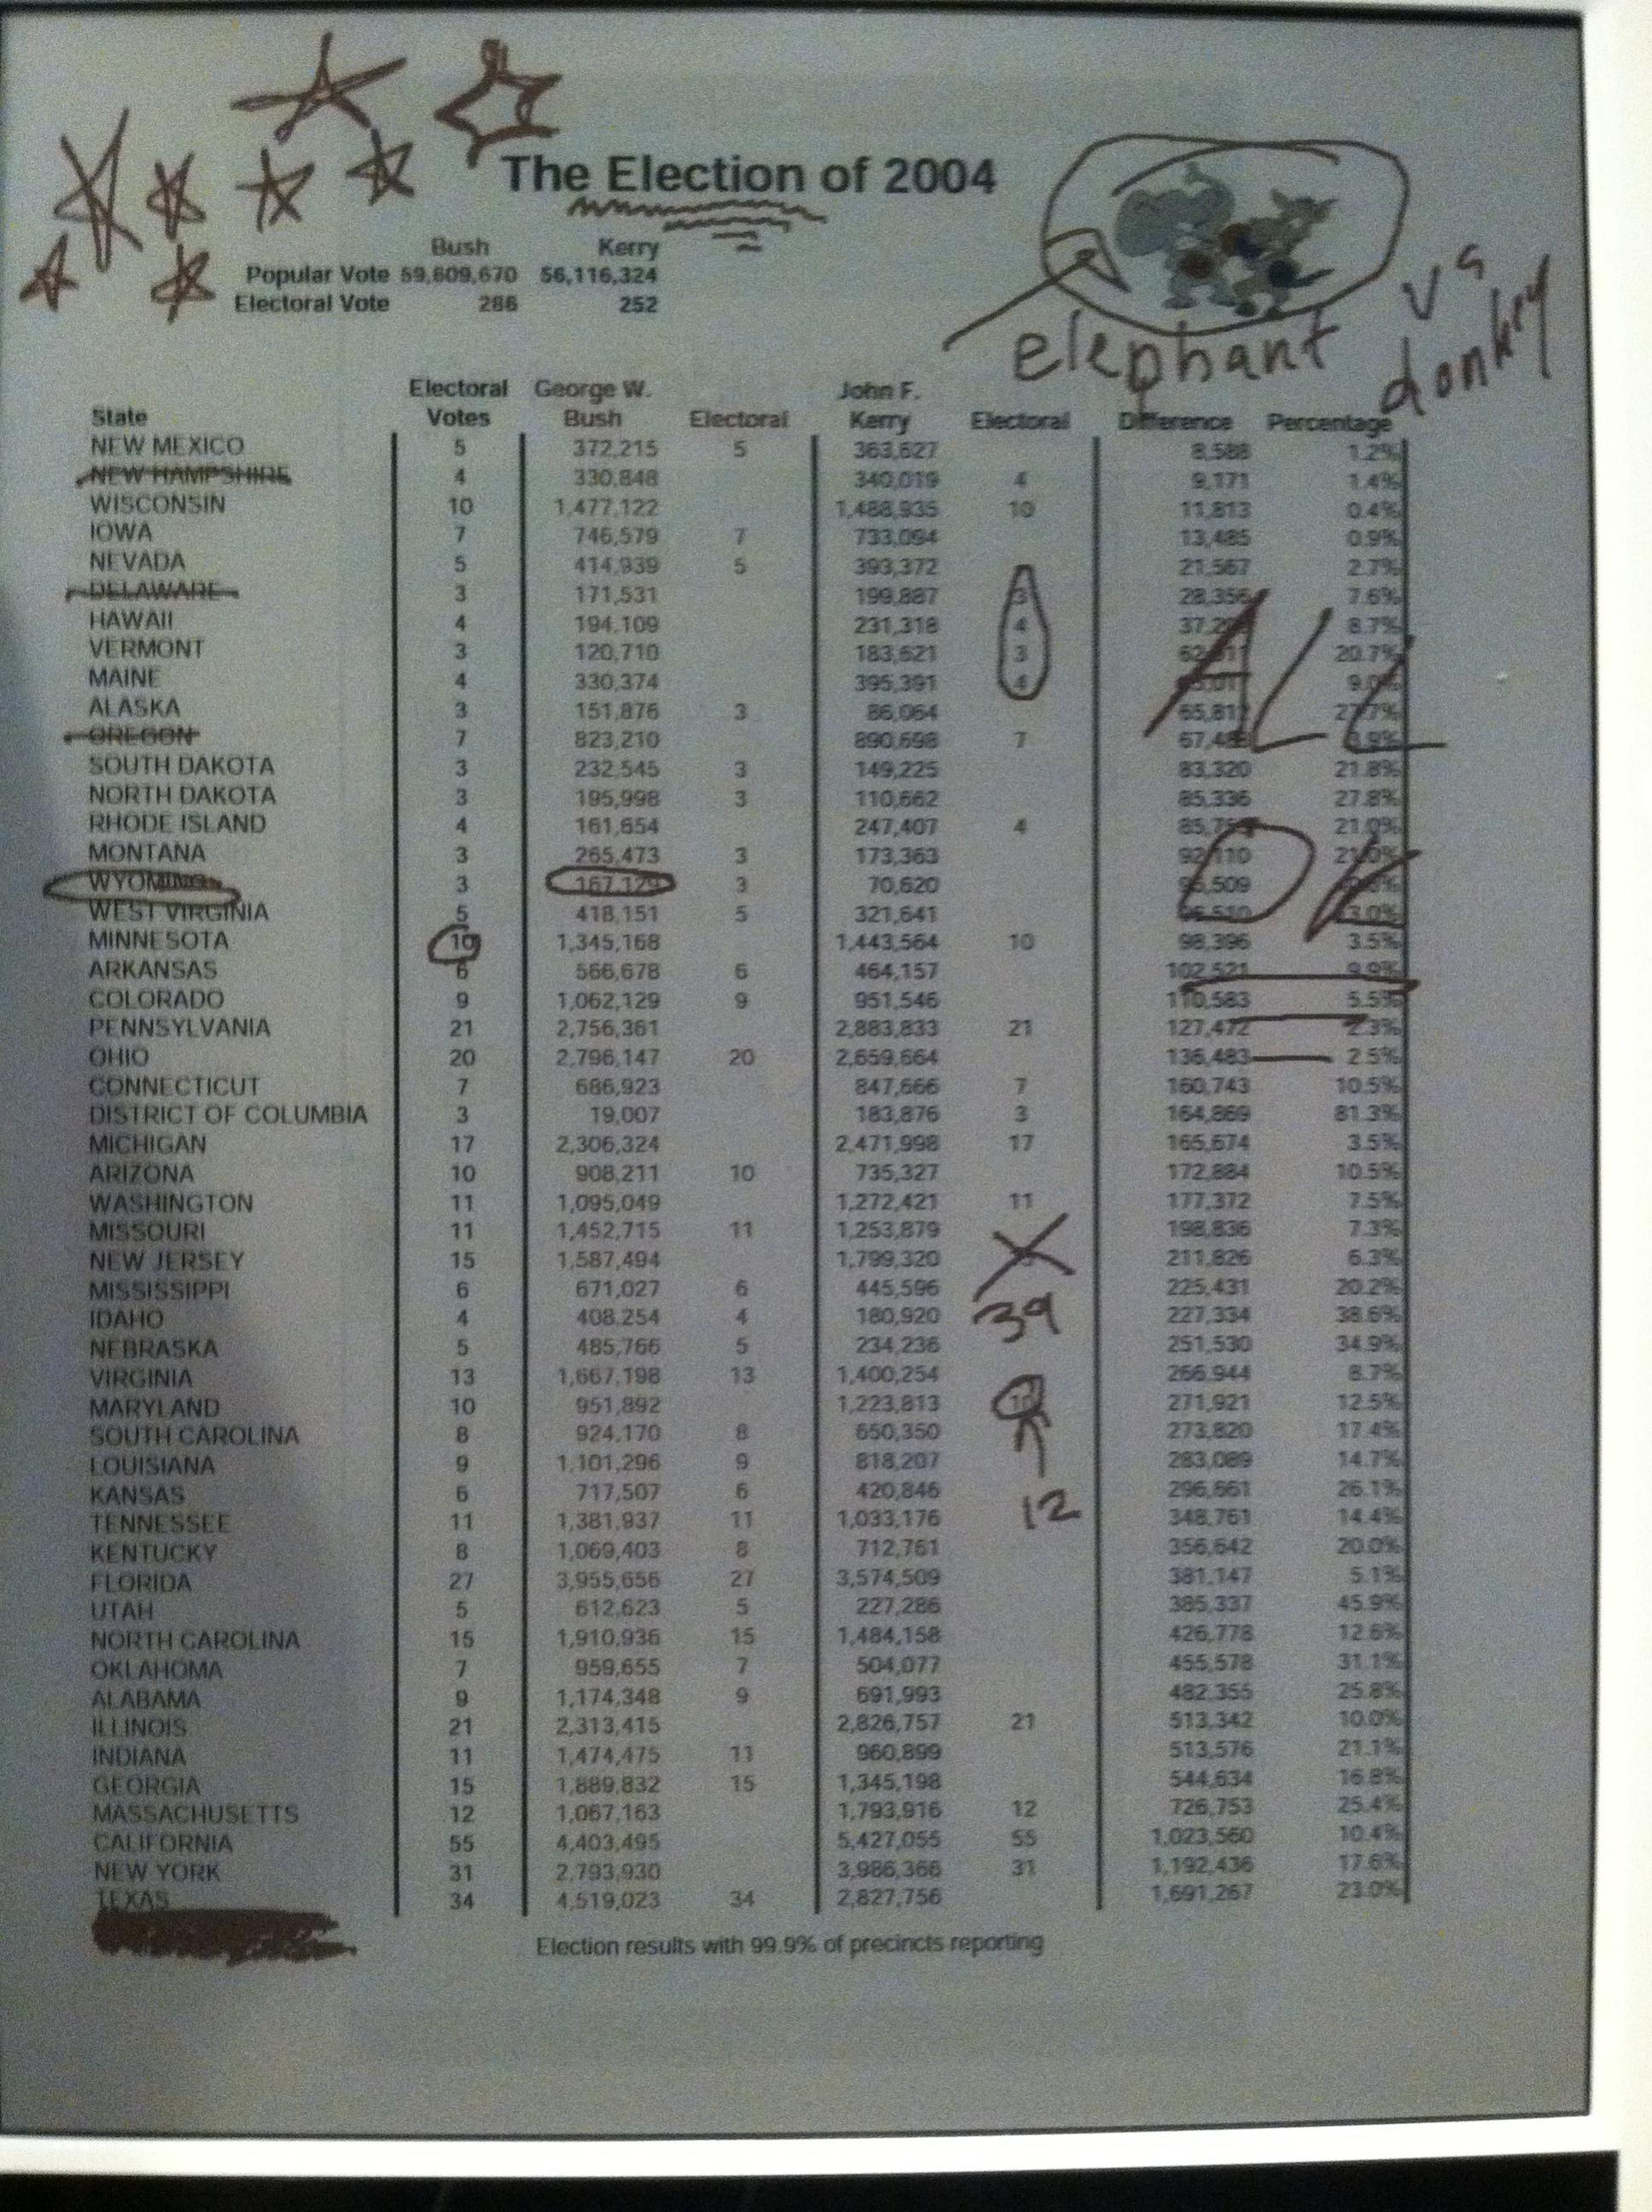 The Election of 2004
Bush Kerry
Popular Vote 59,609,670 56,116,324
Electoral Vote 286 252
elephant
vs
donkey
Electoral George W. John F.
State Votes Bush Electoral Kerry Electoral Difference Percentage
NEW MEXICO 5 372,215 5 363,627 8,588 1.2%
NEW HAMPSHIRE 4 330,848 340,019 4 9,171 1.4%
WISCONSIN 10 1,477,122 1,488,935 10 11,813 0.4%
IOWA 7 746,579 7 733,094 13,485 0.9%
NEVADA 5 414,939 5 393,372 21,567 2.7%
DELAWARE 3 171,531 199,887 3 28,356 7.6%
HAWAII 4 194,109 231,318 4 8.7%
VERMONT 3 120,710 183,621 3 20.7%
MAINE 4 330,374 395,391 4 9.0%
ALL
ALASKA 3 151,876 3 86,064 65,812 27.7%
OREGON 7 823,210 890,698 7 67,488 3.9%
SOUTH DAKOTA 3 232,545 3 149,225 83,320 21.8%
NORTH DAKOTA 3 195,998 3 110,662 85,336 27.8%
RHODE ISLAND 4 161,654 247,407 4 85,753 21.0%
MONTANA 3 265,473 3 173,363 92,110 21.0%
WYOMING 3 167,129 3 70,620 96,509
WEST VIRGINIA 5 418,151 5 321,641 96,510 13.0%
MINNESOTA 10 1,345,168 1,443,564 10 98,396 3.5%
ARKANSAS 6 566,678 6 464,157 102,521 9.9%
COLORADO 9 1,062,129 9 951,546 110,583 5.5%
PENNSYLVANIA 21 2,756,361 2,883,833 21 127,472 2.3%
OHIO 20 2,796,147 20 2,659,664 136,483 2.5%
CONNECTICUT 7 686,923 847,666 7 160,743 10.5%
DISTRICT OF COLUMBIA 3 19,007 183,876 3 164,869 81.3%
MICHIGAN 17 2,306,324 2,471,998 17 165,674 3.5%
ARIZONA 10 908,211 10 735,327 172,884 10.5%
WASHINGTON 11 1,095,049 1,272,421 11 177,372 7.5%
MISSOURI 11 1,452,715 11 1,253,879 198,836 7.3%
NEW JERSEY 15 1,587,494 1,799,320 211,826 6.3%
MISSISSIPPI 6 671,027 6 445,596 225,431 20.2%
IDAHO 4 408,254 4 180,920 39 227,334 38.6%
NEBRASKA 5 485,766 5 234,236 251,530 34.9%
VIRGINIA 13 1,667,198 13 1,400,254 266,944 8.7%
MARYLAND 10 951,892 1,223,813 10 271,921 12.5%
SOUTH CAROLINA 8 924,170 8 650,350 273,820 17.4%
LOUISIANA 9 1,101,296 9 818,207 283,089 14.7%
KANSAS 6 717,507 6 420,846 296,661 26.1%
TENNESSEE 11 1,381,937 11 1,033,176 12 348,761 14.4%
KENTUCKY 8 1,069,403 8 712,761 356,642 20.0%
FLORIDA 27 3,955,656 27 3,574,509 381,147 5.1%
UTAH 5 612,623 5 227,286 385,337 45.9%
NORTH CAROLINA 15 1,910,936 15 1,484,158 426,778 12.6%
OKLAHOMA 7 959,655 7 504,077 455,578 31.1%
ALABAMA 9 1,174,348 9 691,993 482,355 25.8%
ILLINOIS 21 2,313,415 2,826,757 21 513,342 10.0%
INDIANA 11 1,474,475 11 960,899 513,576 21.1%
GEORGIA 15 1,889,832 15 1,345,198 544,634 16.8%
MASSACHUSETTS 12 1,067,163 1,793,916 12 726,753 25.4%
CALIFORNIA 55 4,403,495 5,427,055 55 1,023,560 10.4%
NEW YORK 31 2,793,930 3,986,366 31 1,192,436 17.6%
TEXAS 34 4,519,023 34 2,827,756 1,691,267 23.0%
Election results with 99.9% of precincts reporting